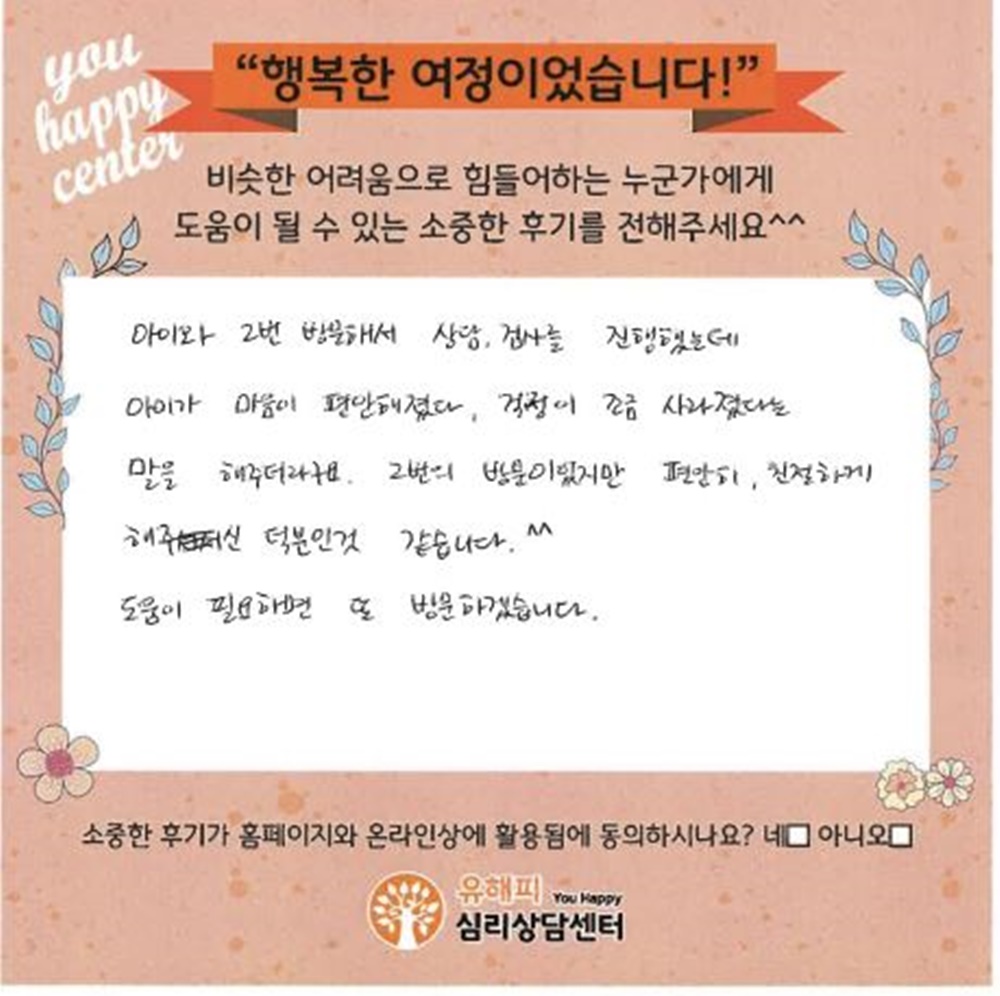 you
happy
center
“행복한 여정이었습니다!”
비슷한 어려움으로 힘들어하는 누군가에게
도움이 될 수 있는 소중한 후기를 전해주세요^^
아이와 2번 방문해서 상담, 검사를 진행했는데
아이가 마음이 편안해졌다, 걱정이 조금 사라졌다는
말을 해주더라구요. 2번의 방문이었지만 편안히, 친절하게
해주신 덕분인것 같습니다.^^
도움이 필요하면 또 방문하겠습니다.
소중한 후기가 홈페이지와 온라인상에 활용됨에 동의하시나요? 네□ 아니오□
유해피 You Happy
심리상담센터